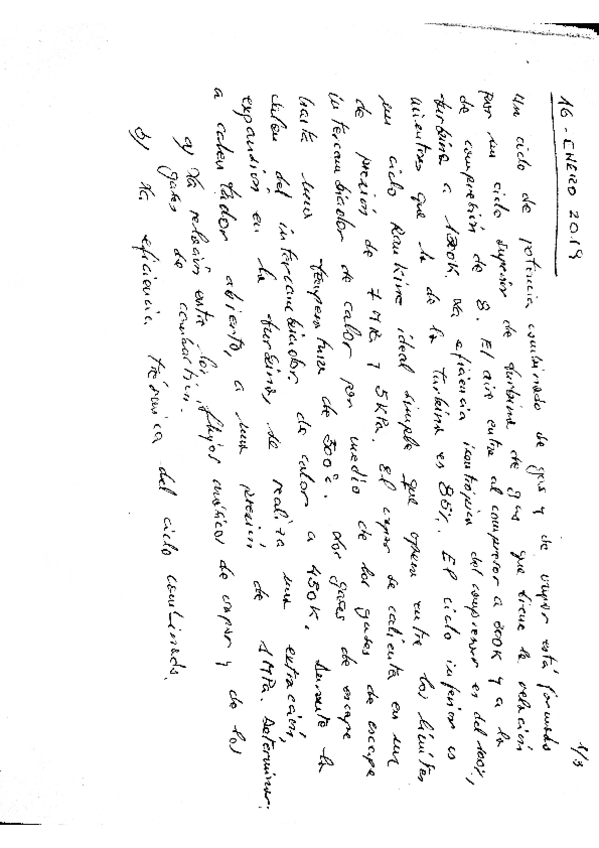 1/3
16 - ENERO 2019
Un ciclo de potencia combinado de gas y de vapor está formado
por un ciclo superior de turbina de gas que tiene la relación
de compresión de 8. El aire entra al compresor a 300K y a la
turbina a K. La eficiencia isentrópica del compresor es del 100%,
mientras que la de la turbina es 86%. El ciclo inferior es
un ciclo Rankine ideal simple que opera entre los límites
de presión de 7 MPa y 5kPa. El vapor se calienta en un
intercambiador de calor por medio de los gases de escape
hasta una temperatura de 500°C. Los gases de escape
salen del intercambiador de calor a 450K. Durante la
expansión en la turbina, se realiza una extracción,
a calentador abierto, a una presión de 1MPa. Determinar:
a) La relación entre los flujos másicos de vapor y de los
gases de combustión.
b) La eficiencia térmica del ciclo combinado.